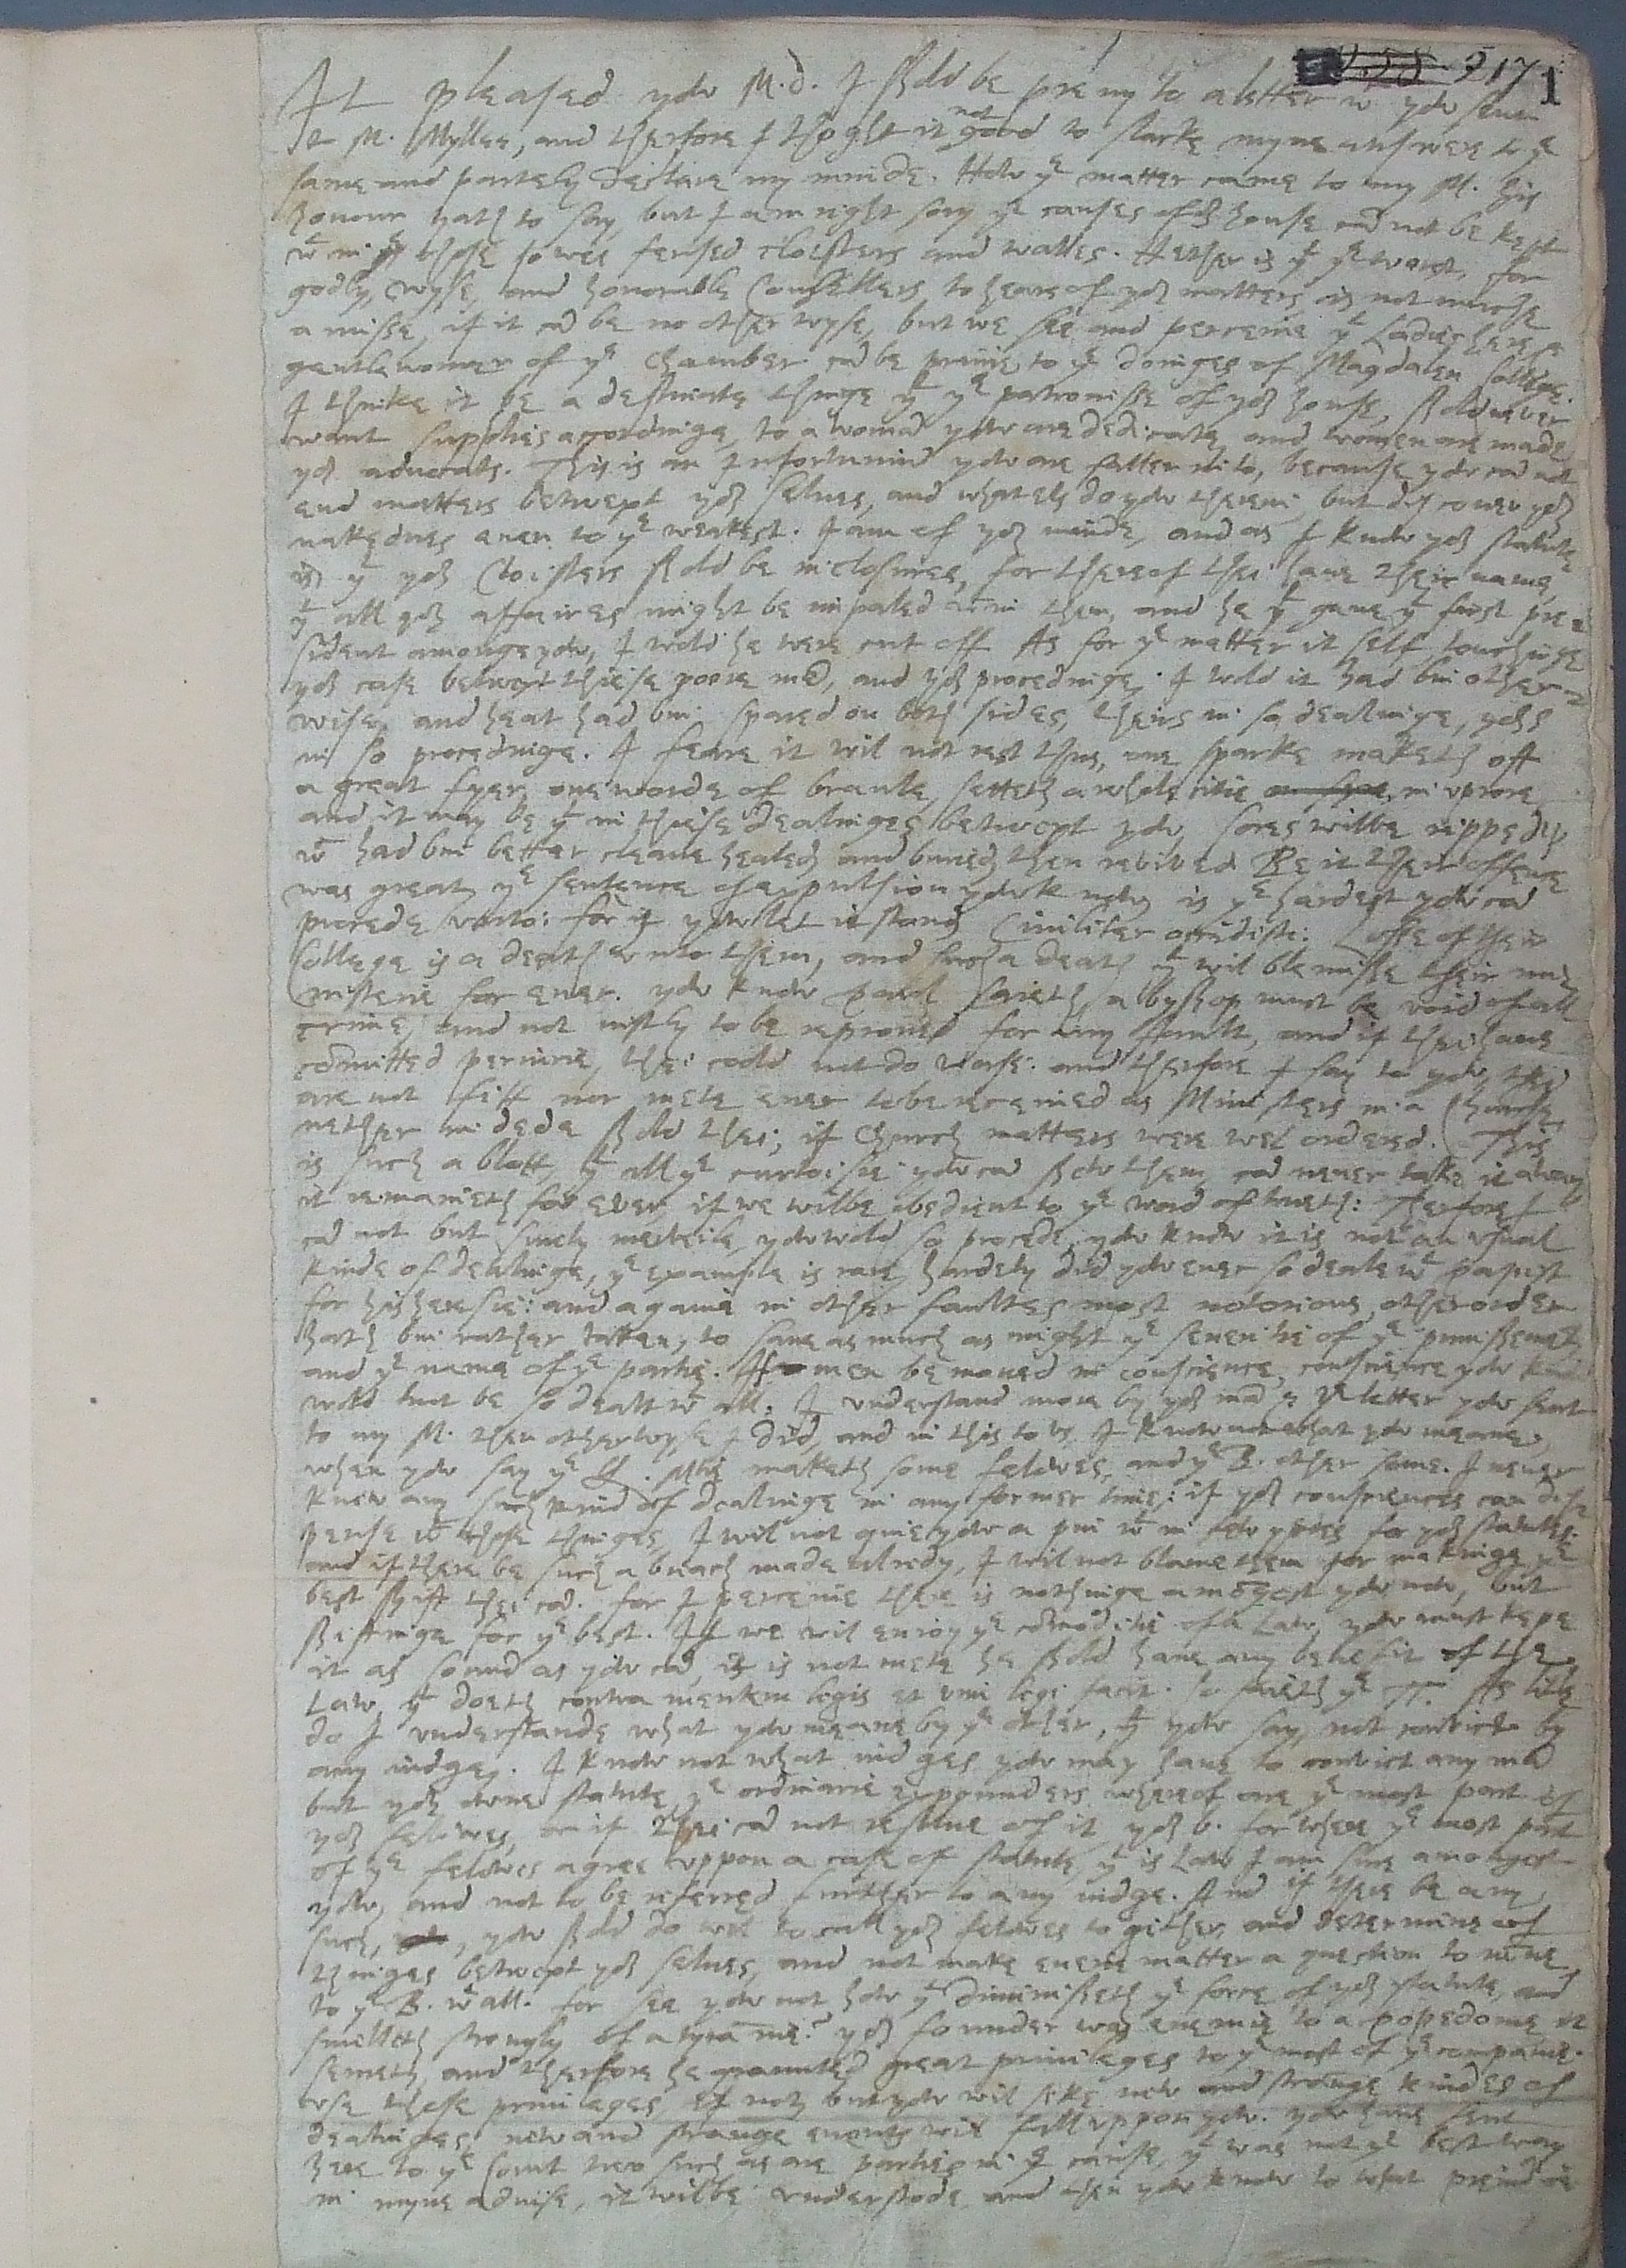 517 1
It pleased yow M. D. I shold be privy to a letter wch yow sent
M. Mylles, and therfore I thoght it not good to slacke myne answere to ye
same and partely declare my minde. How ye matter came to my M. his
honour hath to say, but I am right sory yt causes of yor house can not be kept
wt in those so wel fensed cloisters and walles. Nether is yt ye worst, for
godly, wyse, and honorable Counsellers, to heare of yor matters, is not muche
amisse, if it can be no otherwyse, but we see and perceive yt Ladies here &
gentlewomen of ye chamber can be privie to ye doinges of Magdalen College.
I thinke it be a destinate thinge yt ye patronisse of yor house, shold never
want supplies accordinge, to a woman yow are dedicate, and women are made
yor advocats. This is an Infortunium yow are fallen into, because yow can not
end matters betwext yor selves, and what els do yow therein, but discover yor
nakednes even to ye weakest. I am of yor minde, and as I know yor statute
is, yt yor Cloisters shold be inclosures, for thereof thei have their name,
yt all yor affaires might be impaled wt in them, and he yt gave ye first pre=
sident amonge yow, I wold he were cut off. As for ye matter it self touchinge
yor case betwext thiese poore men, and yor procedinge. I wold it had bin other=
wise, and heat had bin spared on both sides, theirs in so dealinge, yors
in so procedinge. I feare it wil not rest thus, one sparke maketh oft
a great fyer, one worde of braule, setteth a whole citie in uprore
and it may be yt in thiese dealinges betwext yow, sores wilbe ripped up
wch had bin better cleane healed, and buried, then revived. Be it their offence
was great, ye sentence of expulsion yow know is ye hardest yow can
procede unto: for if yow let it stand Civiliter occidisti: Losse of their
College is a death unto them, and such a death yt wil blemishe their mi=
nisterie for ever. yow know Pawl saieth, a byshop must be void of all
crime, and not iustly to be reproved for any fault, and if thei have
committed periurie, thei cold not do worse. and therfore I say to yow, thei
are not fitt nor mete ever to be receaved as Ministers in a Churche,
nether in dede shold thei, if Church matters were wel ordered. This
is such a blott, yt all ye curtoisie yow can shew them, can never take it away
it remaineth for ever, if we wilbe obedient to ye word of trueth: Therfore I
can not but surely merveile, yow wold so procede, yow know it is not an usual
kinde of dealinge, ye example is rare, hardely did yow ever so deale wt papist
for his heresie: and againe in other faultes most notorious, other order
hath bin rather taken, to save as much as might ye severitie of ye punishement,
and ye name of ye partie. If men be moved in conscience, conscience yow know
wold not be so dealt wt all. I understand more by yor man & ye letter yow sent
to my M. then otherwyse I did, and in this to us, I know not what yow meane,
when yow say ye maketh some felowes, and ye B. other some. I never
knew any such kind of dealinge in any former time: if yor consciences can dis=
pense wt those thinges, I wil not give yow a pin wt in few yeres for yor statutes.
and if there be such a breach made alredy, I wil not blame them for makinge ye
best shift thei can. for I perceive there is nothinge amongest yow now, but
shiftinge for ye best. If we wil enioy ye commoditie of a Law, yow must kepe
it as sound as yow can, it is not mete he shold have any benefit of the
Law, yt doeth contra mentem legis et vim legi facit. So saieth ye As litle
do I understande what yow meane by ye other, yt yow say, not convict by
any iudge. I know not what iudges yow may have to convict any man
but yor owne statute, ye ordinarie expounders whereof are ye most part of
yor felowes, or if thei can not resolve of it, yor b. for where ye most part
of ye felowes agree uppon a case of statute, yt is Law I am sure amongest
yow, and not to be referred further to any iudge. And if there be any
such, yow shold do wel to call yor felowes togither, and determine of
thinges betwext yor selves, and not make everie matter a question to move
to ye B. wt all. for see yow not how yt diminisheth ye force of yor statute, and
smelleth strongly of a tyrannie? yor founder was enemie to a popedome it
semeth, and therfore he graunted great privileges to ye most of ye companie.
use those privileges. If not, but yow wil seke new and strange kindes of
dealinges, new and strange events wil fall uppon yow. yow have sent
here to ye Court two such as are parties in ye cause, yt was not ye best way
in myne advise, it wilbe understode, and then yow know to what preiudice